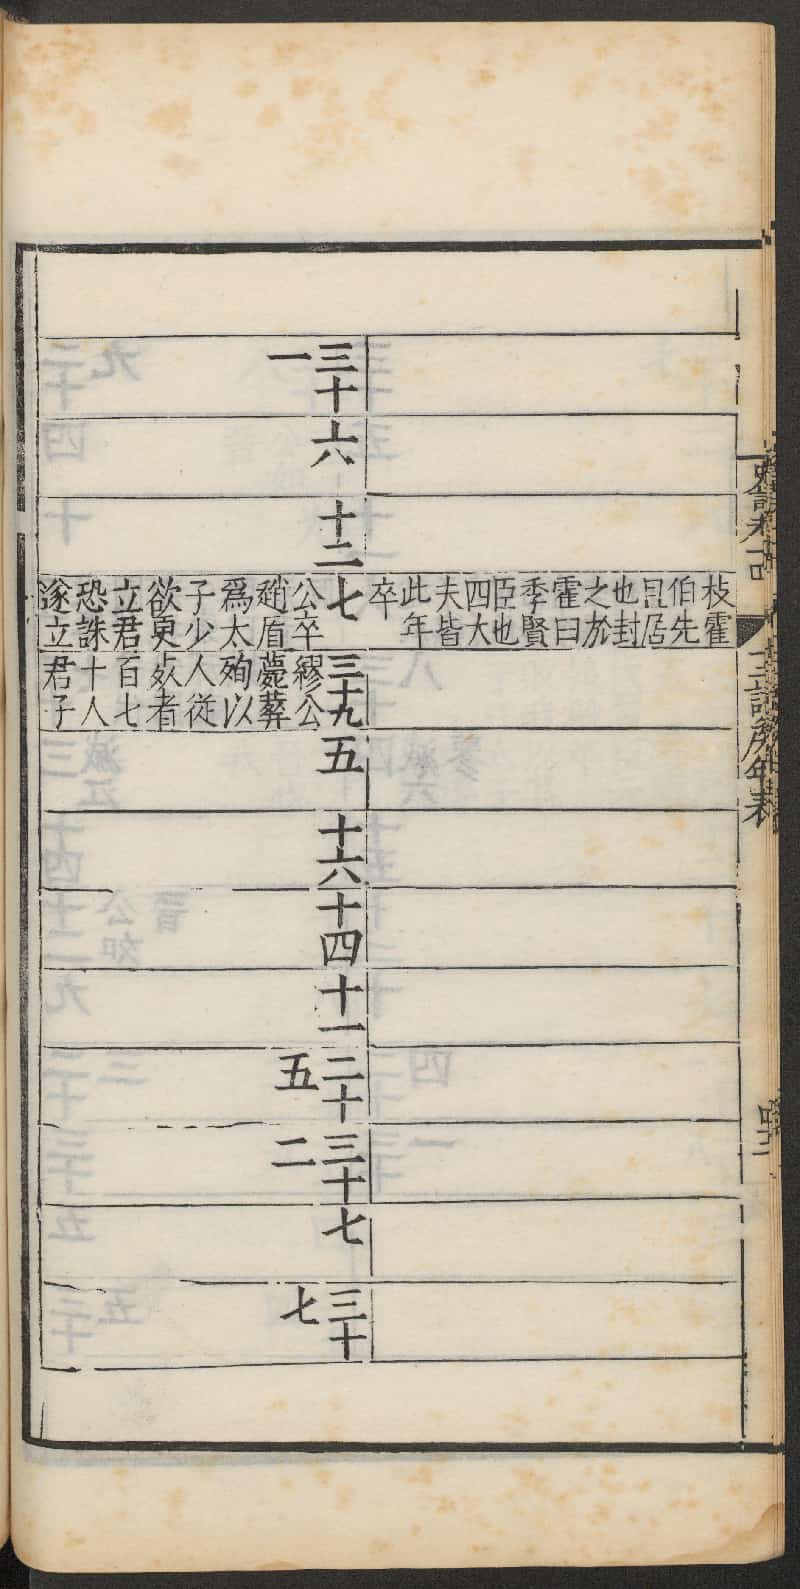 枝霍
伯先
且居
也封
之於
霍曰
季賢
臣也
四大
夫皆
此年
卒
三十
一
六
十二
七
公卒
趙盾
爲太
子少
欲更
立君
恐誅
遂立
三十九
繆公
薨葬
殉以
人從
死者
百七
十人
君子
五
十六
十四
十一
二十
五
三十
二
七
三十
七